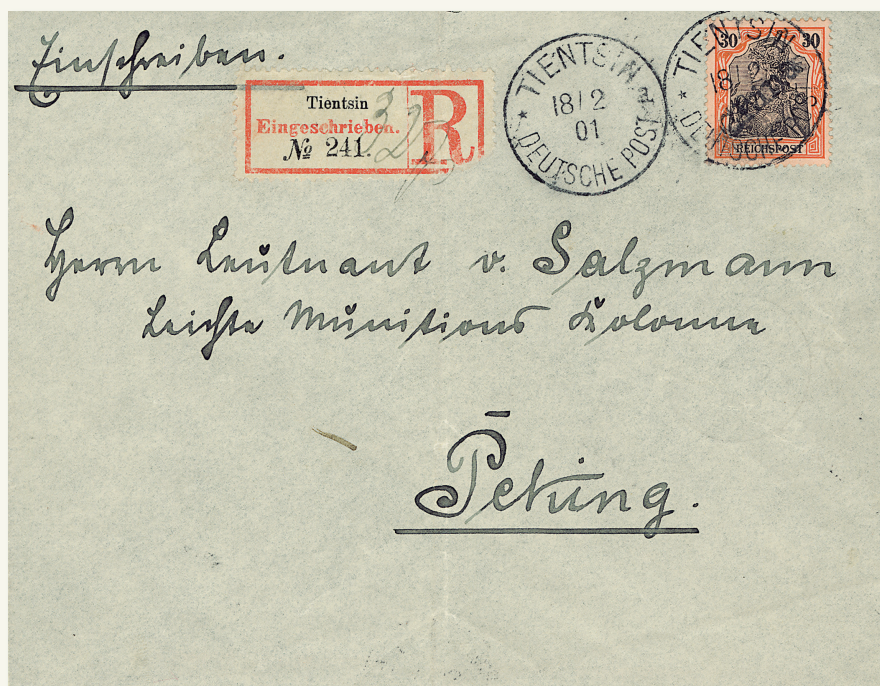 Einschreiben.
Tientsin
Eingeschrieben.
№ 241.
R
TIENTSIN
18/2
01
DEUTSCHE POST
TIENTSIN
18/2
DEUTSCHE POST
30 30
China
REICHSPOST
Herrn Leutnant v. Salzmann
Leichte Munitions Kolonne
Peking.